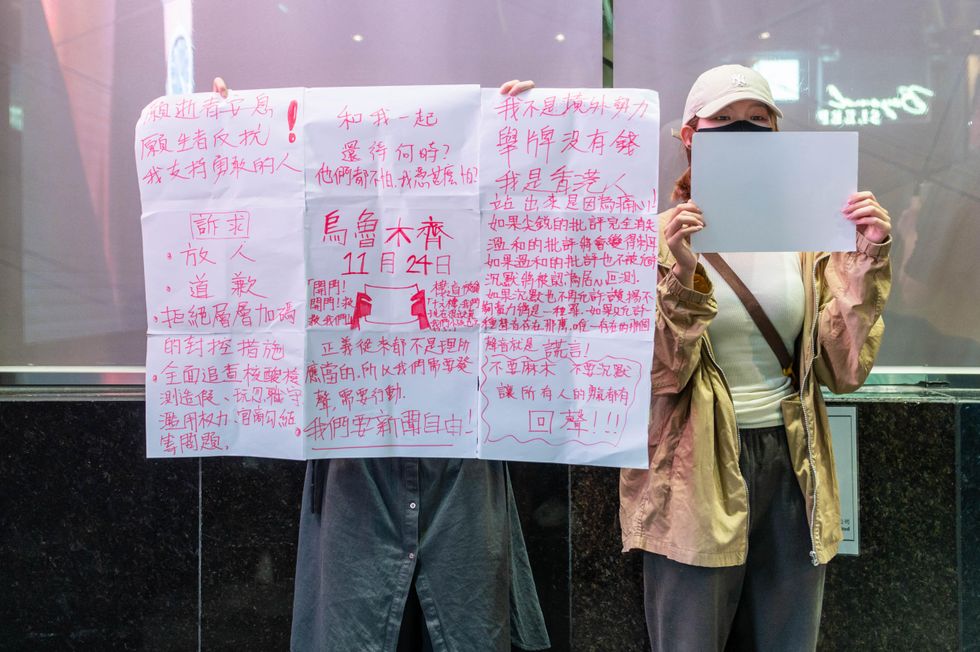 願逝者安息
願生者反抗!
我支持勇敢的人
訴求
· 放人
· 道歉
· 拒絕層層加碼
的封控措施
· 全面追查核酸檢
測造假、玩忽職守
濫用權力、官商勾結
等問題。
和我一起
還待何時?
他們都不怕,我甚麼怕?
烏魯木齊
11月24日
「開門!
開門!救
救我們!」
正義從來都不是理所
應當的,所以我們需要發
聲,需要行動.
我們要新聞自由!
我不是境外勢力
舉牌沒有錢
我是香港人
站出來是因為痛心!
如果尖銳的批評完全消失
溫和的批評將會變得刺耳
如果溫和的批評也不被允許
沉默將被認為居心叵測.
如果沉默也不再允許,讚揚不
夠賣力將是一種罪.如果只允許
一種聲音存在,那麼,唯一存在的那個
聲音就是 謊言!
不要麻木 不要沉默
讓所有人的都有
回聲!!!
NY
Beyond
SLEEP